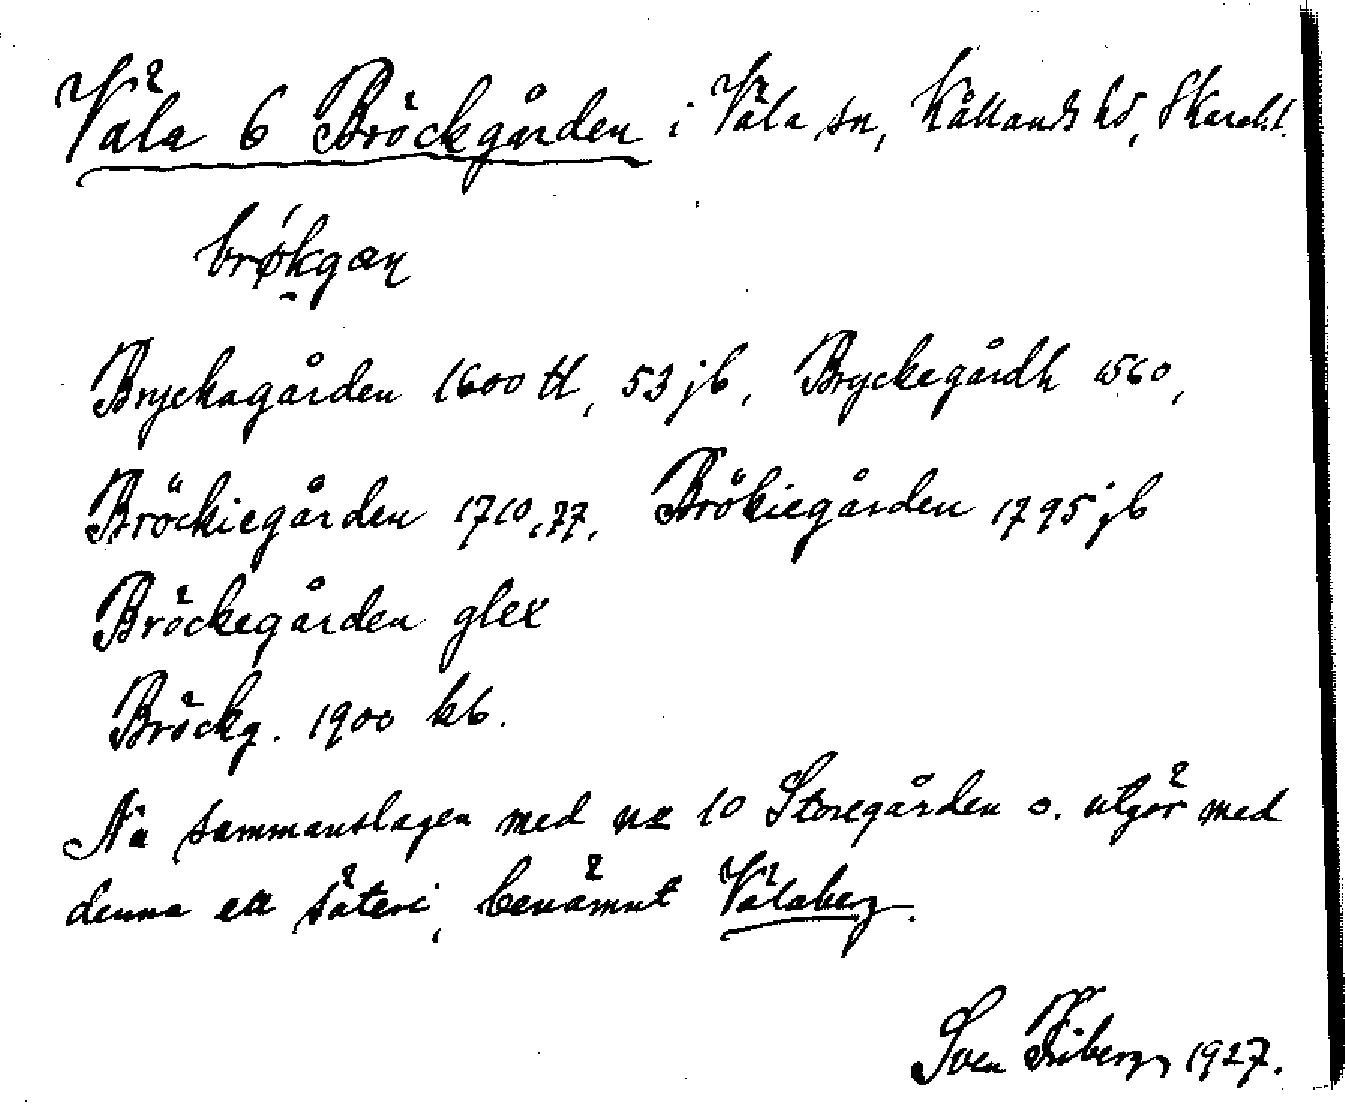 Väla 6 Bröckgården i Väla sn, Kållands hd, Skarabl.
brøkgan
Bryckagården 1600 tl, 53 jb, Bryckegårdh 1560,
Bröckiegården 1710, 77, Brökiegården 1795 jb
Bröckegården glex
Bröckg. 1900 kb.
Nu sammanslagen med nr 10 Storegården o. utgör med
denna ett säteri, benämnt Välaberg.
Sven Friberg 1927.